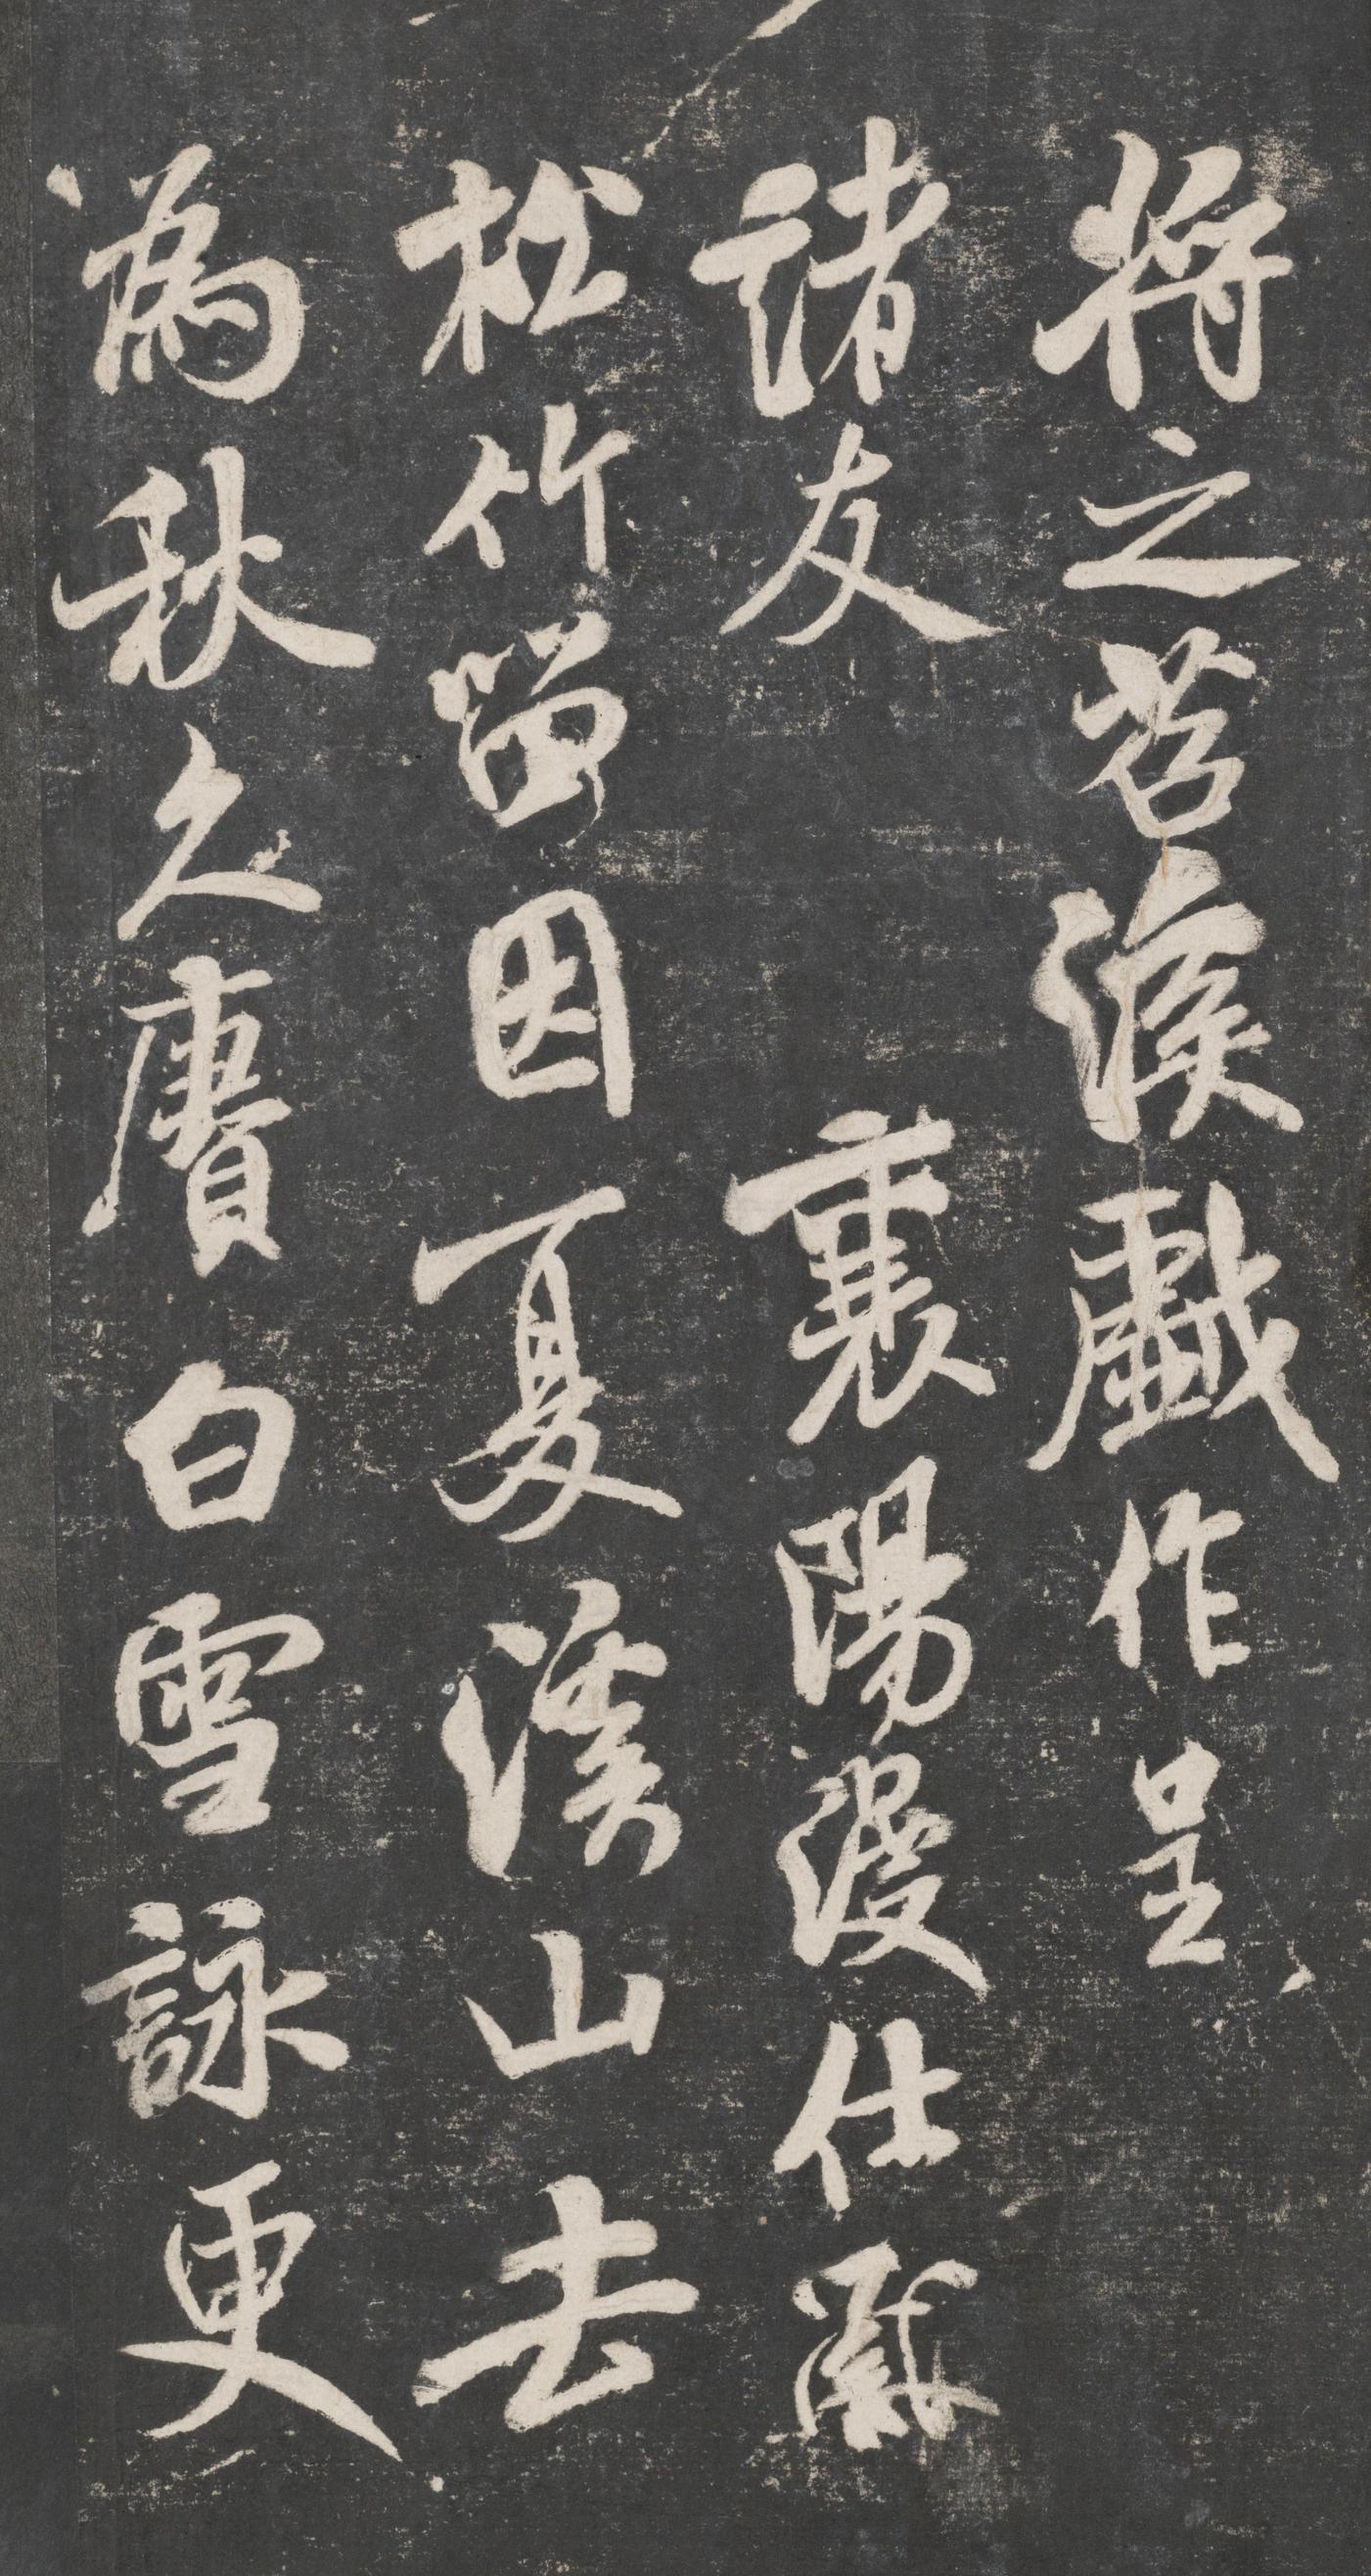 將之苕溪戲作呈
諸友 襄陽漫仕黻
松竹留因夏溪山去
為秋久賡白雪詠更